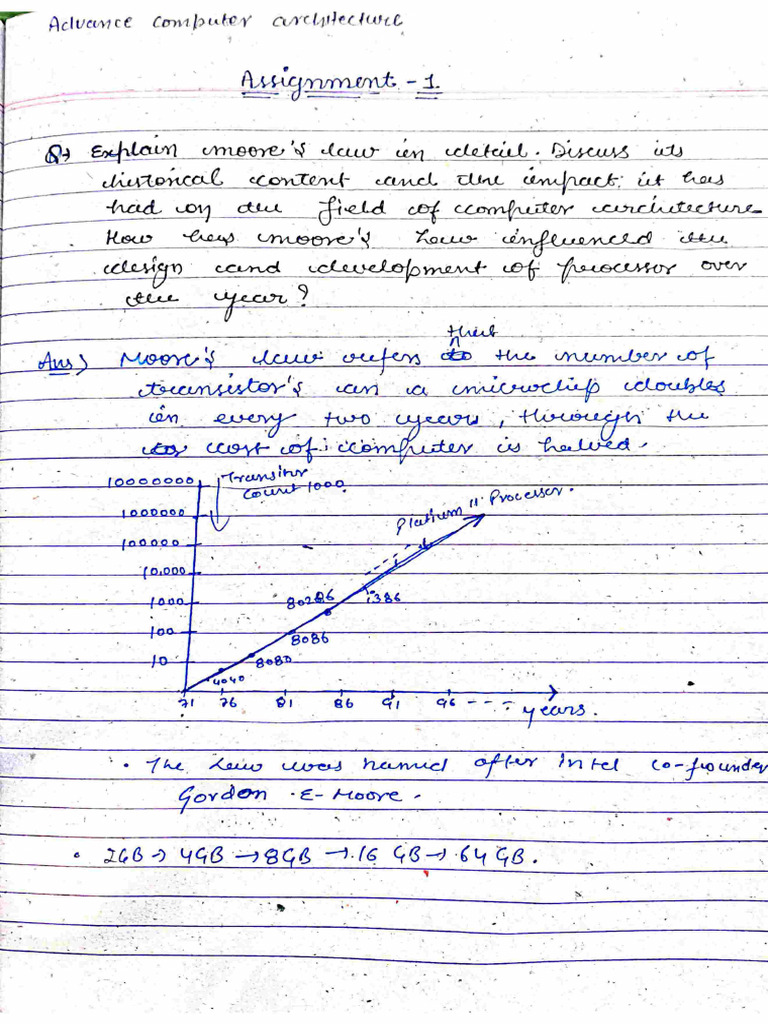 Advance computer architecture
Assignment - 1.
Q→ Explain moore's law in detail. Discuss its
historical content and the impact it has
had on the field of computer architecture
How has moore's Law influenced the
design and development of processor over
the year?
Ans) Moore's law refers that the number of
transistor's in a microchip doubles
in every two years, through the
cost of computer is halved.
10000000
Transitor
count 1000
1000000
Processor.
100000
10,000
1000
80286
i386
100
8086
10
8080
4040
71 76 81 86 91 96 - - - - years.
• The Law was named after Intel co-founder
Gordon E-Moore.
• 2GB → 4GB → 8GB → 16 GB → 64 GB.